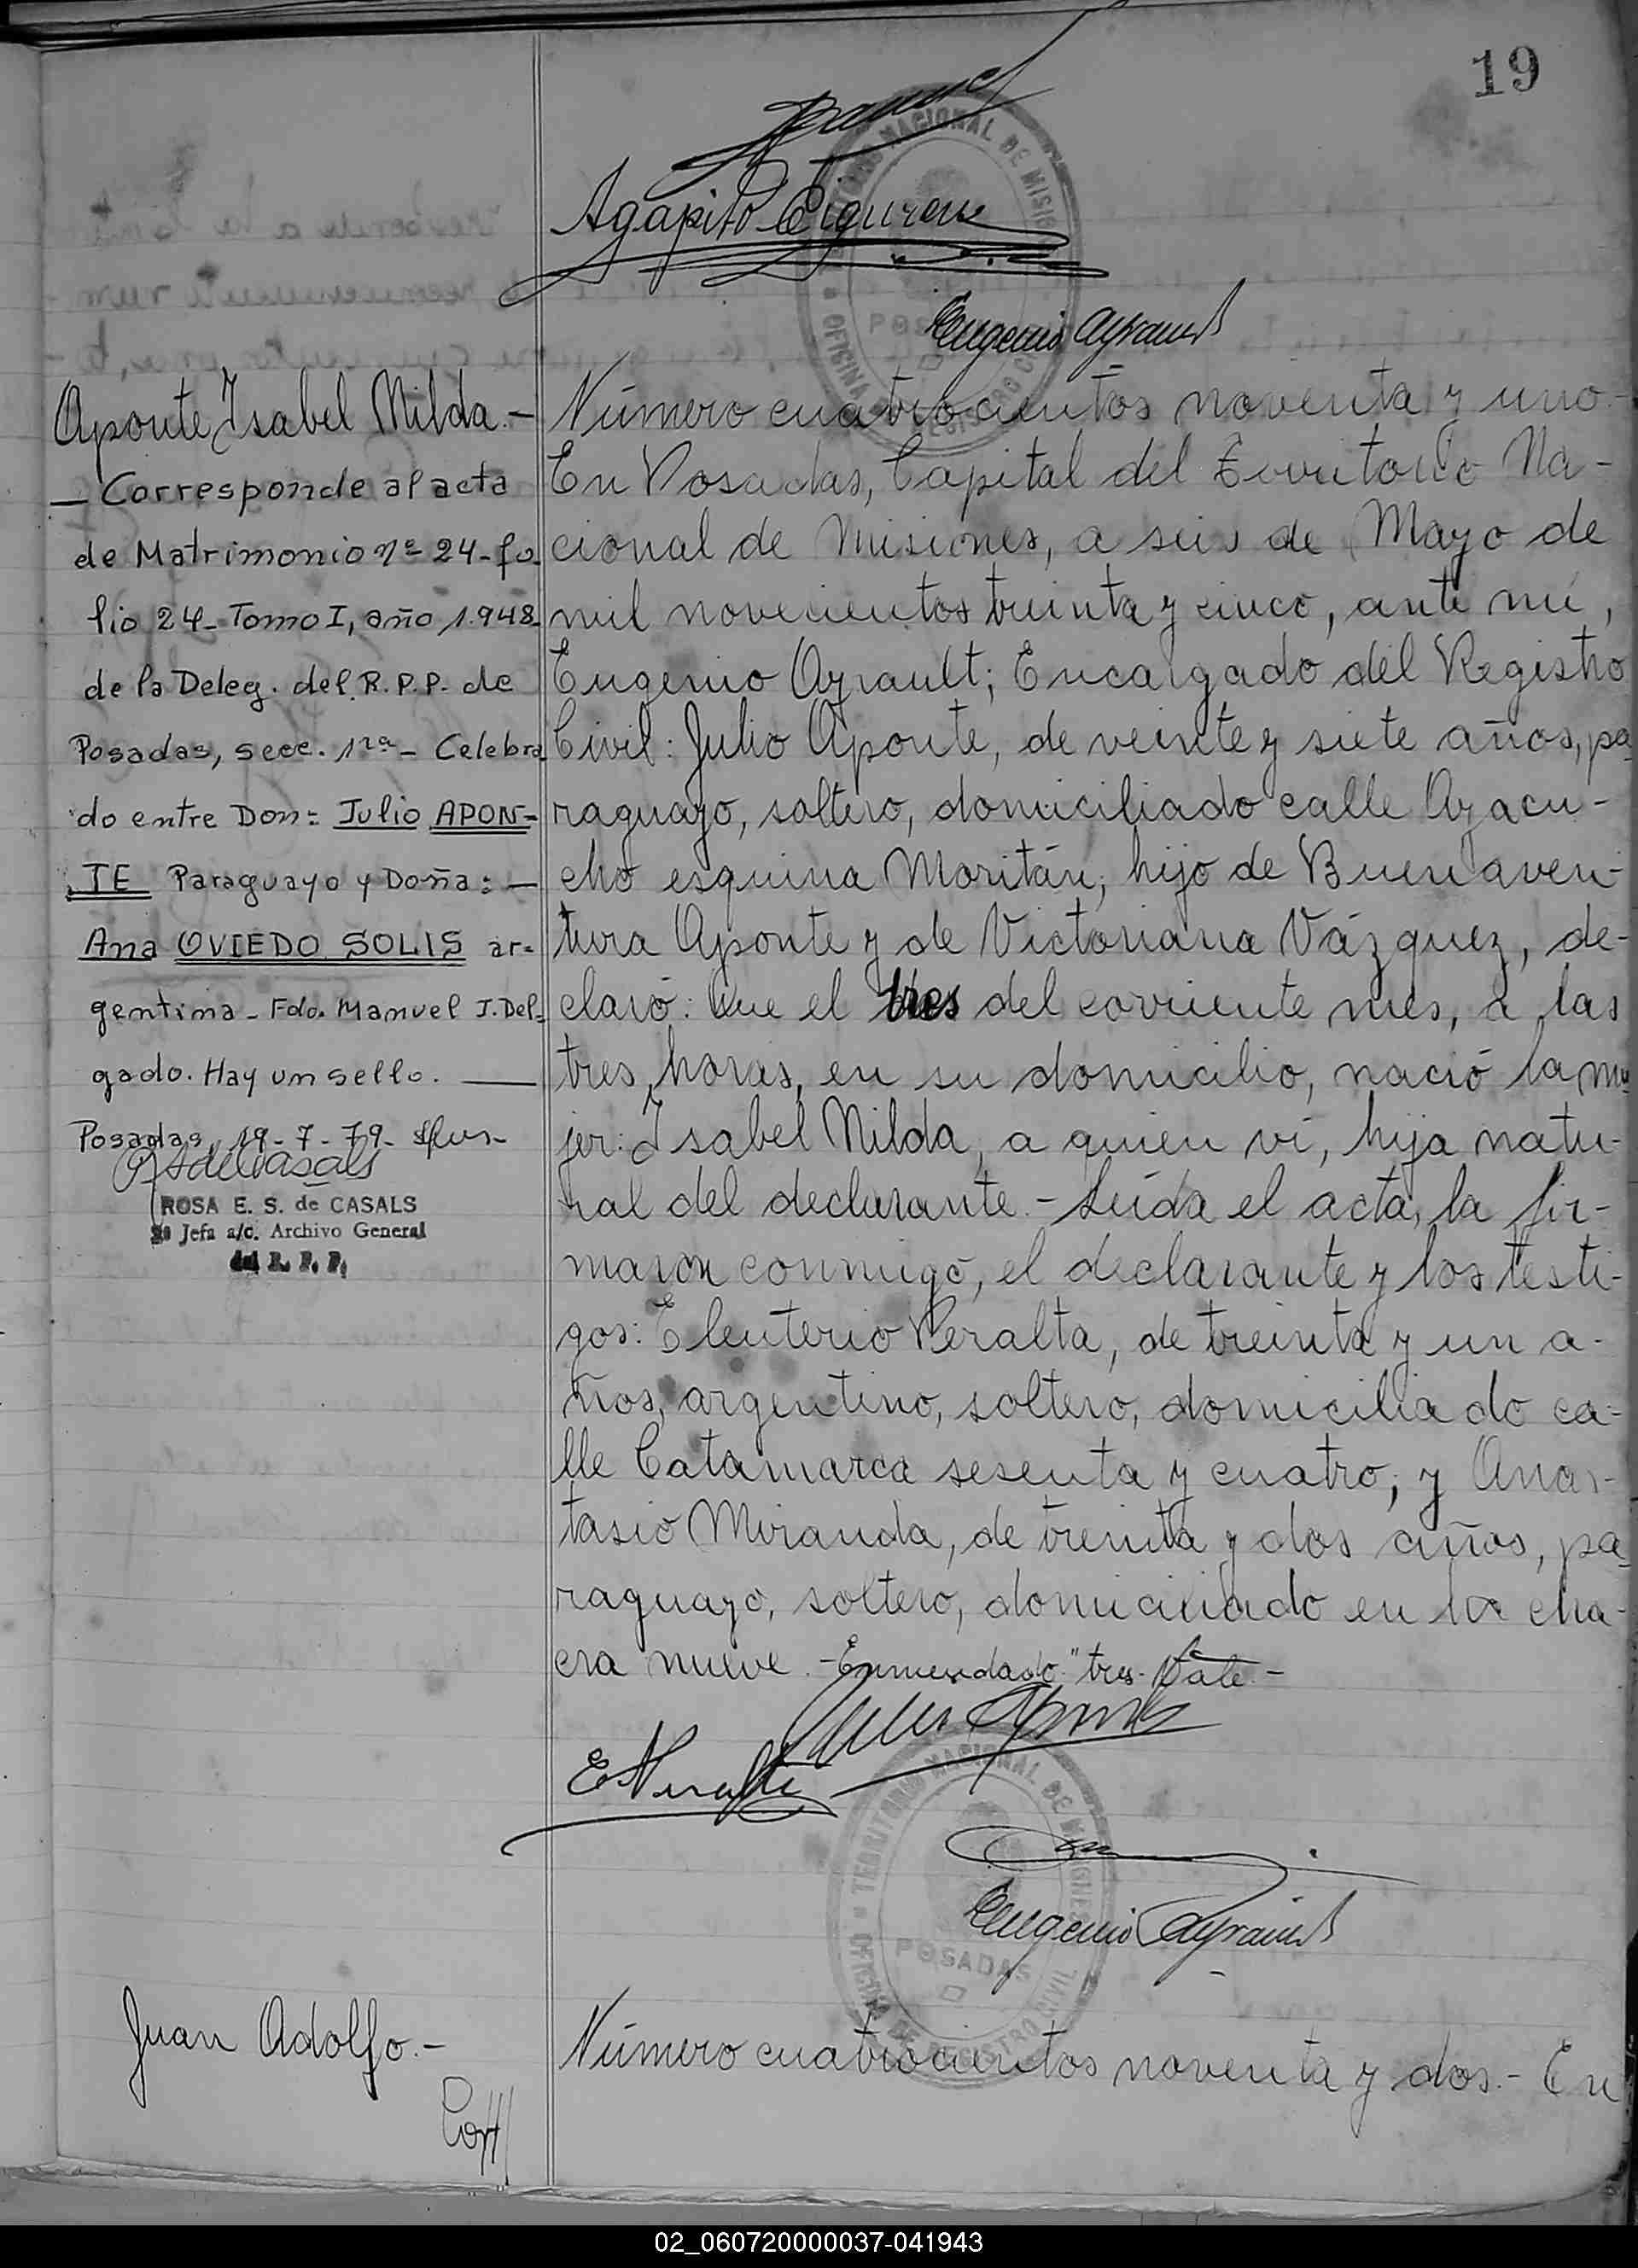 19
Agapito Eiguren
TERRITORIO NACIONAL DE MISIONES
OFICINA DE REGISTRO CIVIL
POSADAS
Eugenio Ayrault
Aponte Isabel Nilda.-
— Corresponde al acta
de Matrimonio nº 24-fo-
lio 24- Tomo I, año 1.948-
de la Deleg. del R.P.P. de
Posadas, secc. 1ra - Celebra-
do entre Don: Julio APON-
TE Paraguayo y Doña: —
Ana OVIEDO SOLIS ar-
gentina - Fdo. Manuel J. Del-
gado. Hay un sello. —
Posadas, 19-7-79-
ROSA E. S. de CASALS
Jefa a/c. Archivo General
del R. P. P.
Número cuatrocientos noventa y uno.-
En Posadas, Capital del Territorio Na-
cional de Misiones, a seis de Mayo de
mil novecientos treinta y cinco, ante mí,
Eugenio Ayrault; Encargado del Registro
Civil: Julio Aponte, de veinte y siete años, pa-
raguayo, soltero, domiciliado calle Ayacu-
cho esquina Moritán; hijo de Buenaven-
tura Aponte y de Victoriana Vázquez, de-
claró: Que el tres del corriente mes, a las
tres horas, en su domicilio, nació la mu-
jer: Isabel Nilda, a quien ví, hija natu-
ral del declarante.- Leída el acta, la fir-
maron conmigo, el declarante y los testi-
gos: Eleuterio Peralta, de treinta y un a-
ños, argentino, soltero, domiciliado ca-
lle Catamarca sesenta y cuatro; y Anas-
tasio Miranda, de treinta y dos años, pa-
raguayo, soltero, domiciliado en la cha-
cra nueve.- Enmendado "tres- Vale.-
Julio Aponte
E Peralta
TERRITORIO NACIONAL DE MISIONES
OFICINA DE REGISTRO CIVIL
POSADAS
Eugenio Ayrault
Juan Adolfo.-
Número cuatrocientos noventa y dos.- En
02_060720000037-041943